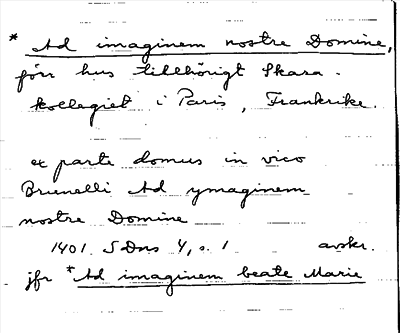 * Ad imaginem nostre Domine,
förr hus tillhörigt Skara-
kollegiet i Paris, Frankrike.
ex parte domus in vico
Brunelli Ad ymaginem
nostre Domine
1401 SDns 4, s. 1 avskr.
jfr * Ad imaginem beate Marie